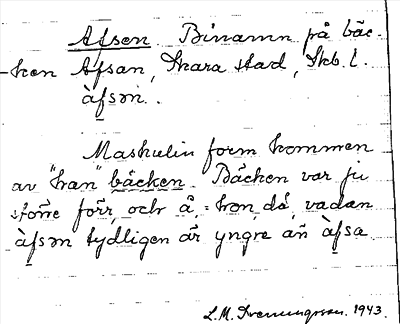 Afsen. Binamn på bäc-
ken Afsan, Skara stad, Skb. l.
àfsən.
Maskulin form kommen
av "han" bäcken. Bäcken var ju
större förr, och å, = hon, då, vadan
àfsən tydligen är yngre än àfsa.
L.M. Svenungsson. 1943.